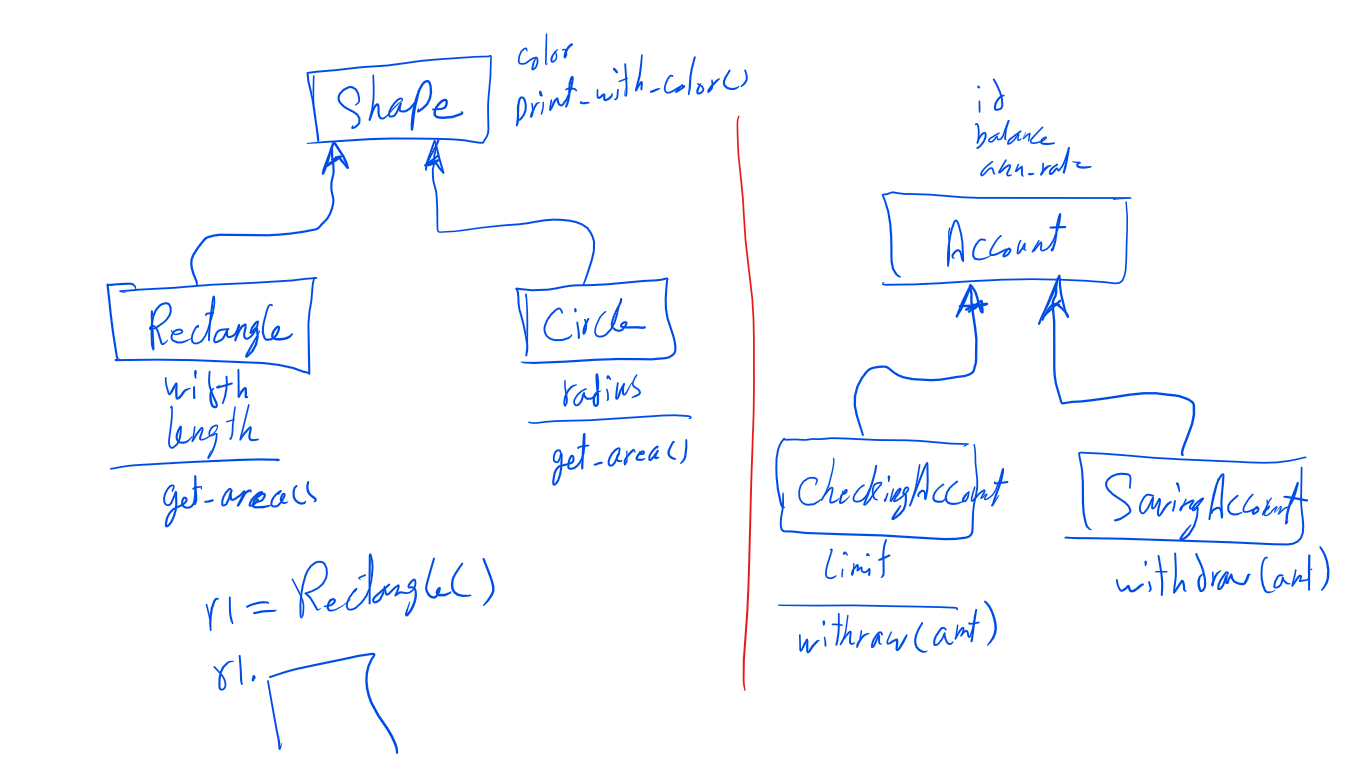 Shape
color
print_with_color()
Rectangle
width
length
get_area()
Circle
radius
get_area()
r1 = Rectangle()
r1.
id
balance
ann_rate
Account
CheckingAccount
limit
withraw(amt)
SavingAccount
withdraw(amt)